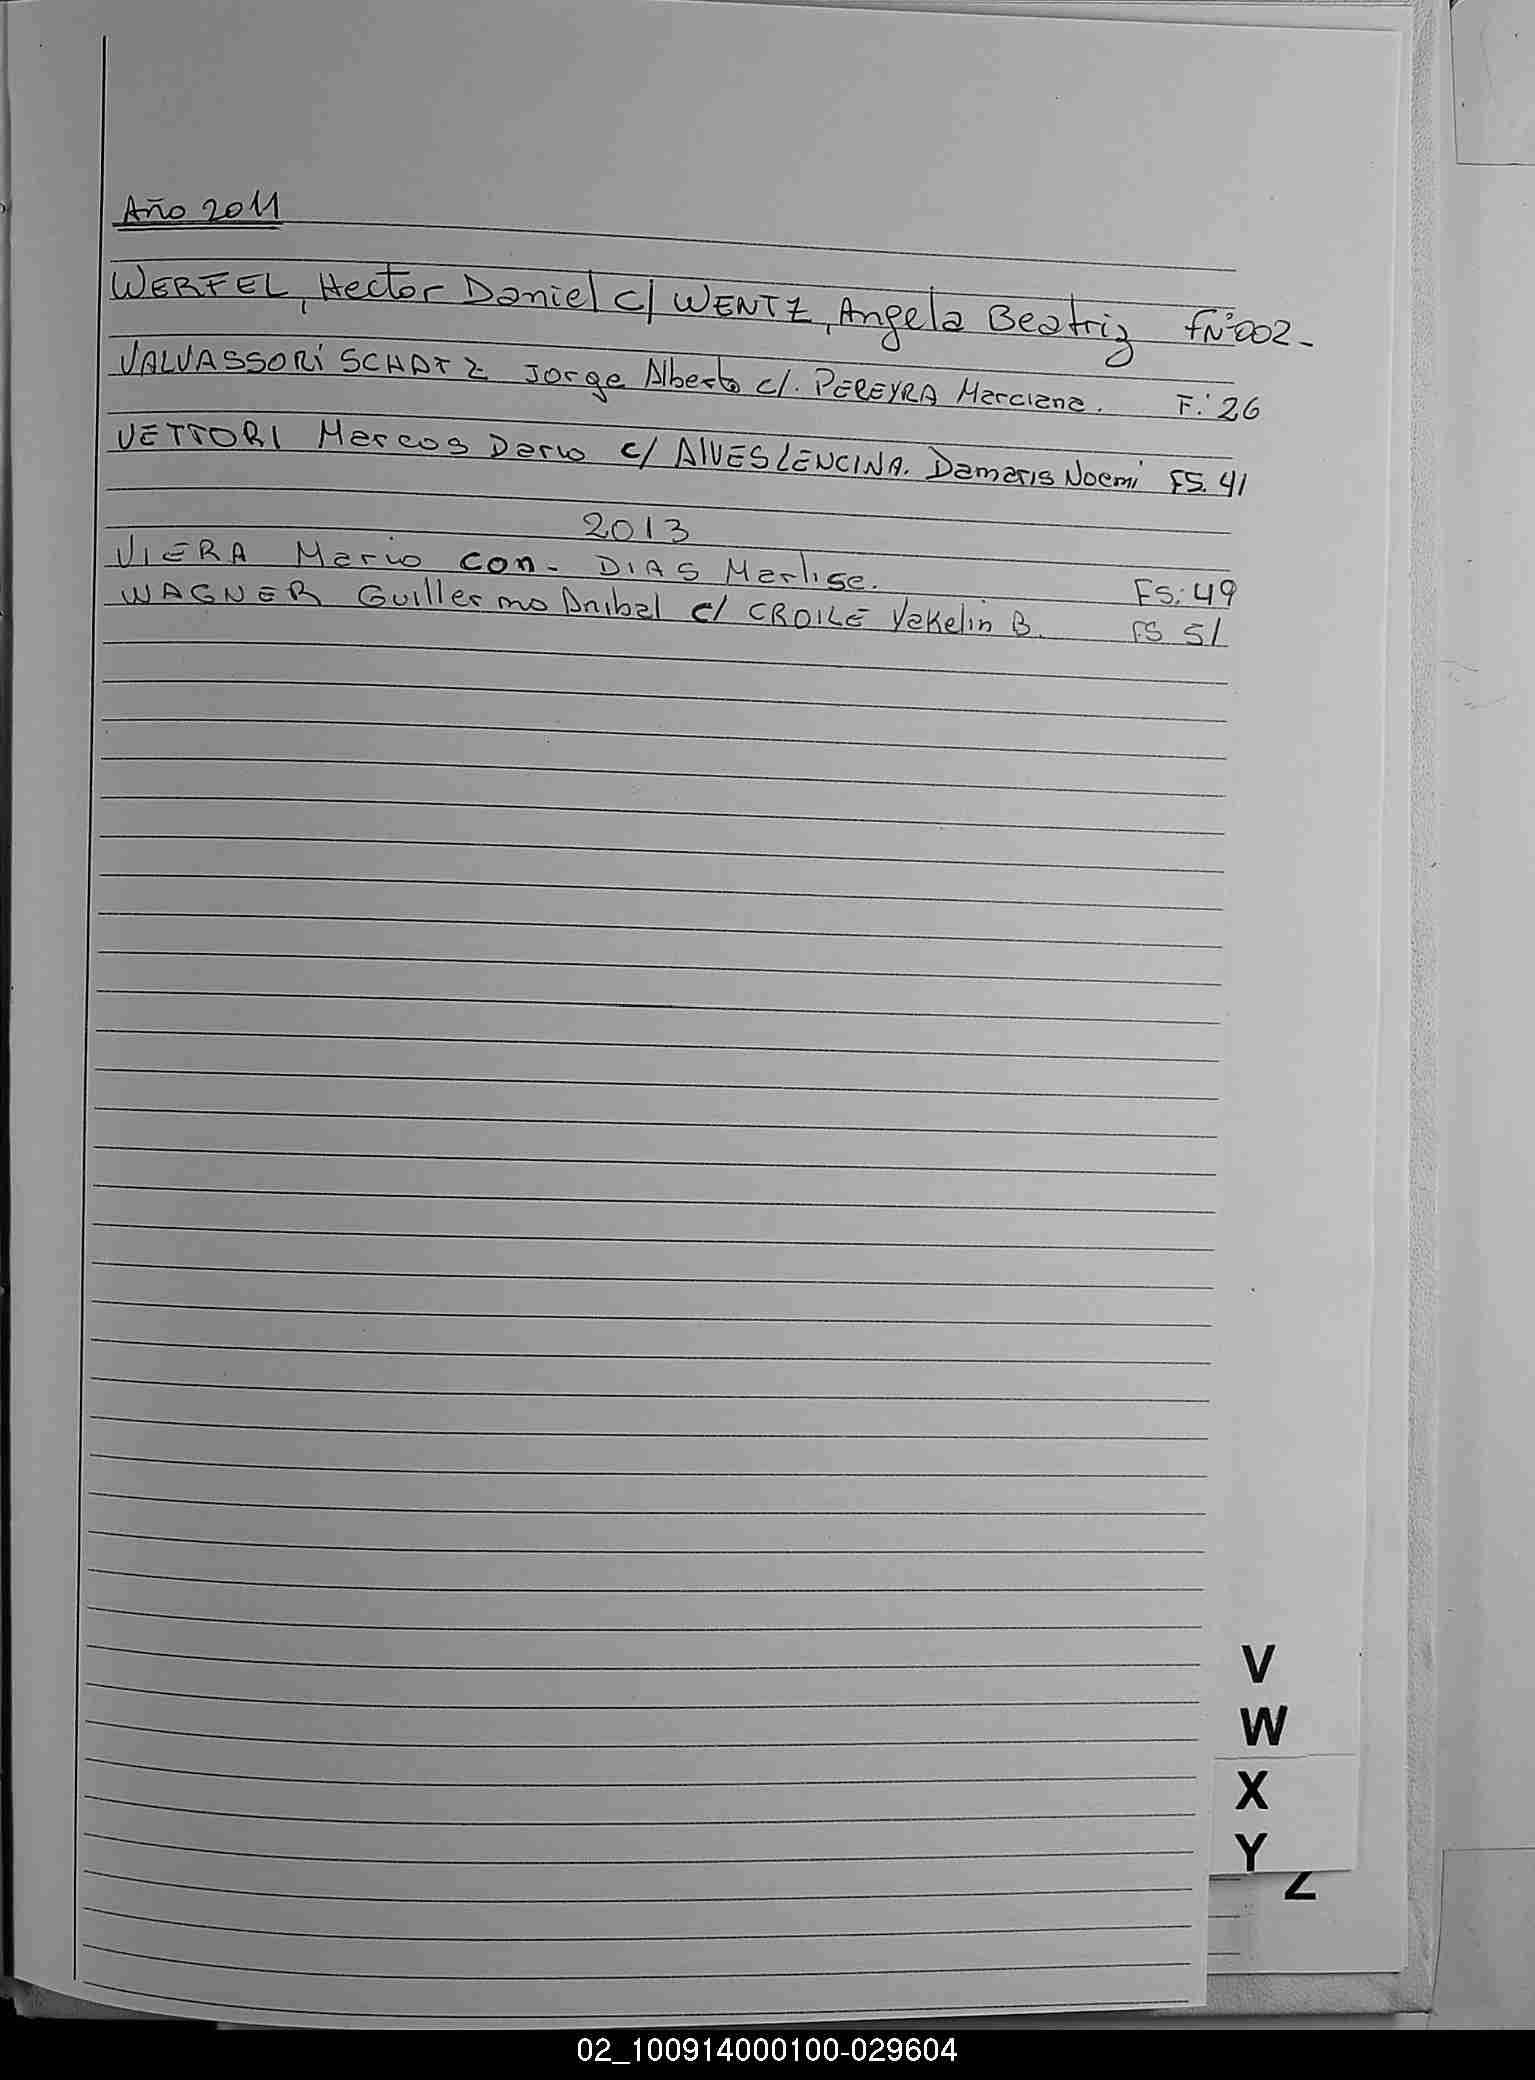 Año 2011
WERFEL, Hector Daniel c/ WENTZ, Angela Beatriz fNº002-
VALVASSORI SCHATZ Jorge Alberto c/. PEREYRA Marciana. F.' 26
VETTORI Marcos Dario c/ AlVES LENCINA. Damaris Noemi FS. 41
2013
VIERA Mario con- DIAS Marlise. FS: 49
WAGNER Guillermo Anibal c/ CROILE Yakelin B. FS 51
V
W
X
Y
Z
02_100914000100-029604